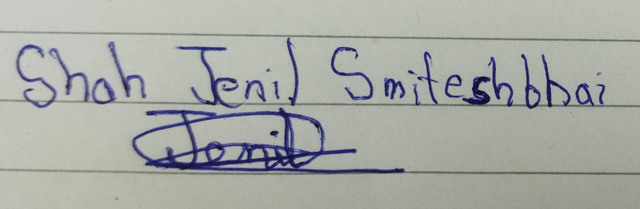 Shah Jenil Smiteshbhai
Jenil